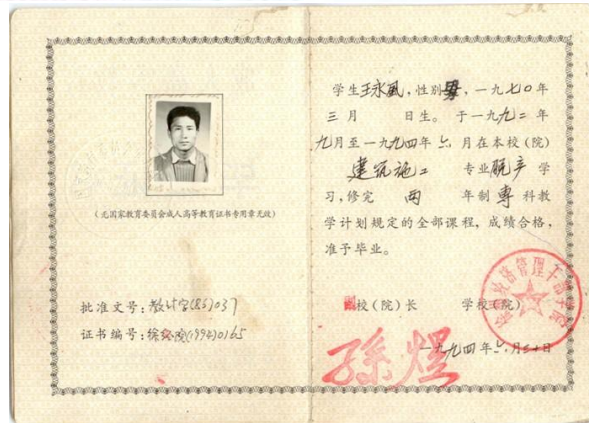 (无国家教育委员会成人高等教育证书专用章无效)
批准文号:教计字(86)037
证书编号:(1994)0165
学生王永,性别男,一九七〇年
三月 日生。于一九九二年
九月至一九九四年六月在本校(院)
建筑施工 专业脱产学
习,修完 两 年制专科教
学计划规定的全部课程,成绩合格,
准予毕业。
校(院)长 学校(院)
孫煜
经济管理干部学院
一九九四年六月三十日